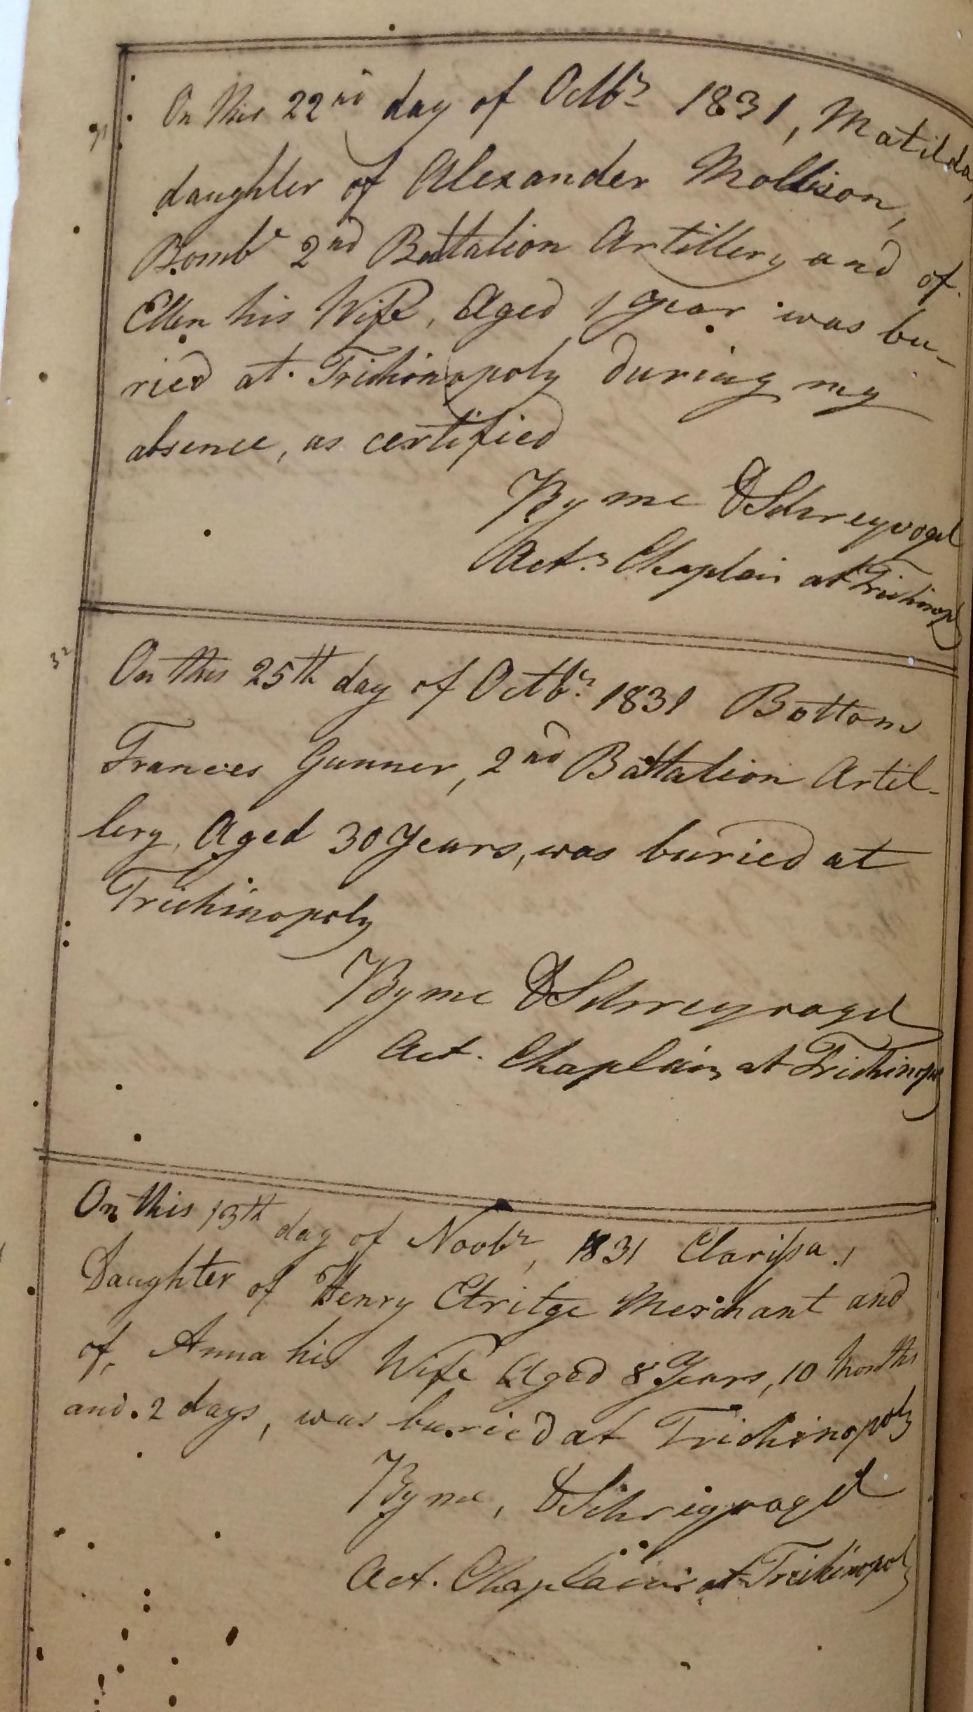 On this 22nd day of Octbr 1831, Matilda,
daughter of Alexander Mollison,
Bombr 2nd Battalion Artillery and of
Ellen his Wife, Aged 1 Year was bu-
ried at Trichinopoly during my
absence, as certified
By me D Schreyvogel
Actg Chaplain at Trichinopoly
32
On this 25th day of Octbr 1831 Bottom
Frances Gunner, 2nd Battalion Artil-
lery, Aged 30 Years, was buried at
Trichinopoly
By me D Schreyvogel
Act. Chaplain at Trichinopoly
On this 13th day of Novbr, 1831 Clarissa,
Daughter of Henry Etritge Merchant and
of, Anna his Wife Aged 8 Years, 10 Months
and 2 days, was buried at Trichinopoly
By me, D Schreyvogel
Act. Chaplain at Trichinopoly